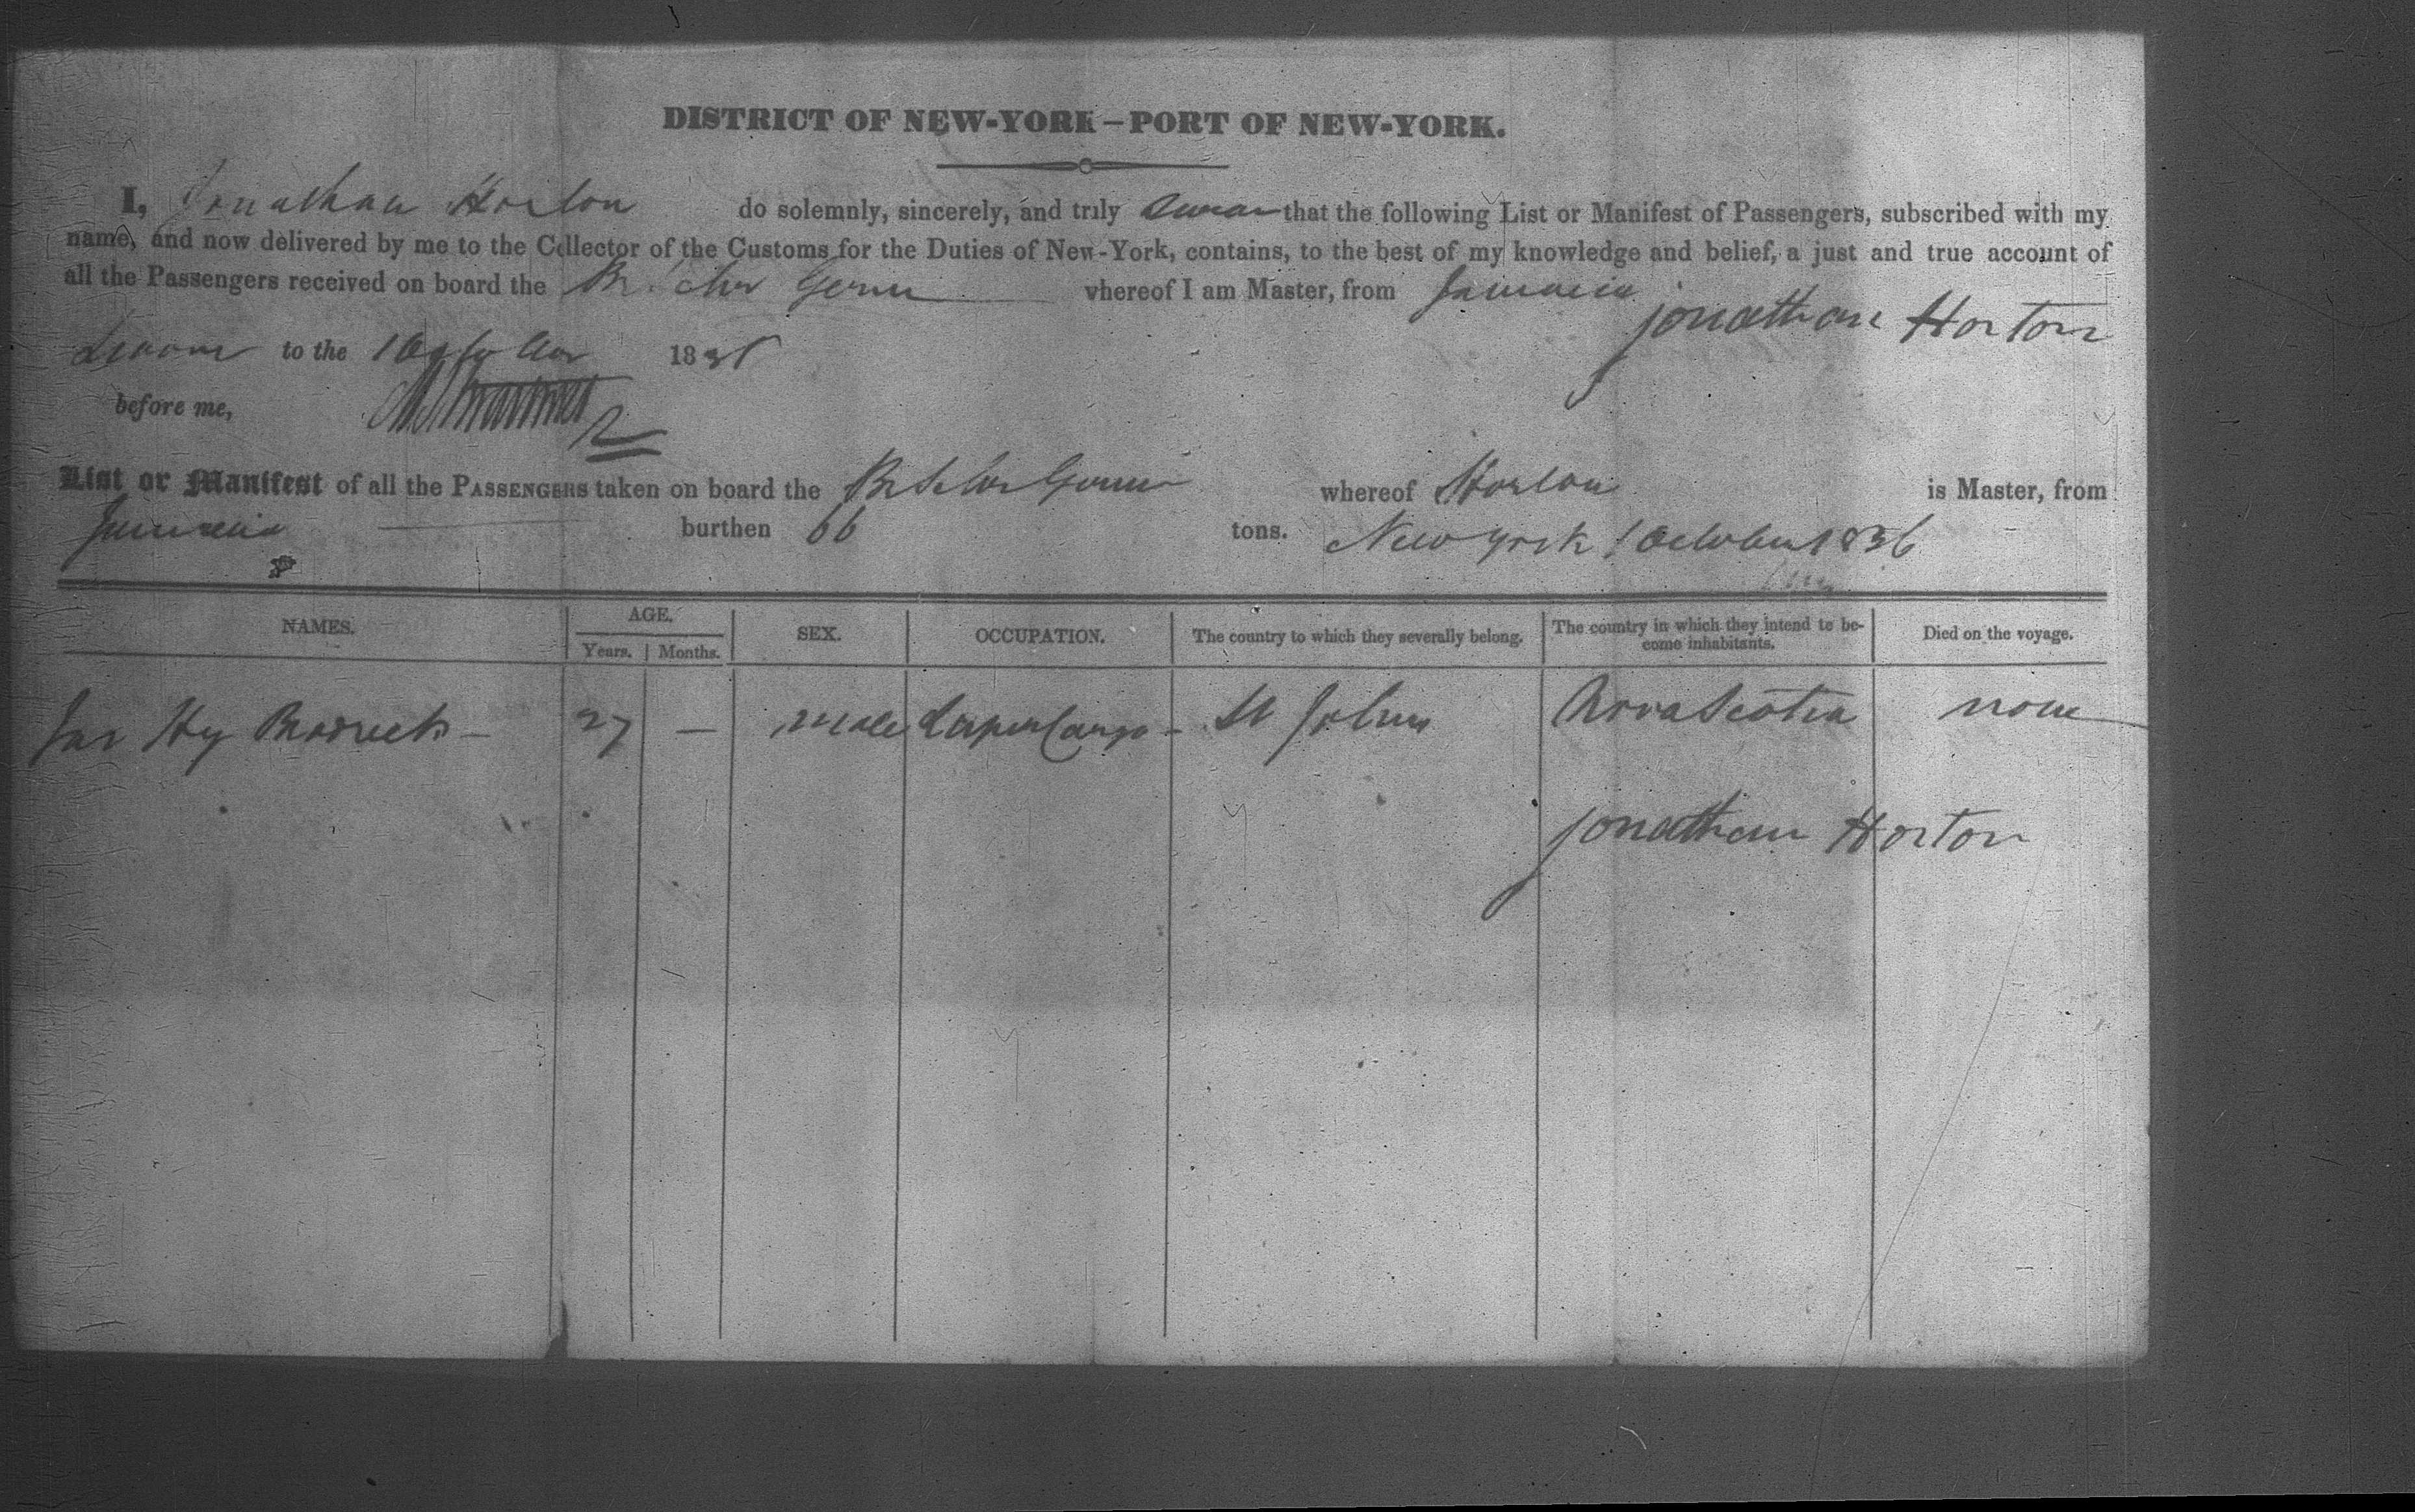 DISTRICT OF NEW-YORK—PORT OF NEW-YORK.
I, Jonathan Horton do solemnly, sincerely, and truly swear that the following List or Manifest of Passengers, subscribed with my
name, and now delivered by me to the Collector of the Customs for the Duties of New-York, contains, to the best of my knowledge and belief, a just and true account of
all the Passengers received on board the Br. Schr whereof I am Master, from Jamaica
Jonathan Horton
Sworn to the 1 October 183
before me,
List or Manifest of all the PASSENGERS taken on board the Br Schr whereof Horton is Master, from
Jamaica burthen 66 tons. New York 1 October 1836
NAMES. AGE. Years. Months. SEX. OCCUPATION. The country to which they severally belong. The country in which they intend to be-come inhabitants. Died on the voyage.
Jas Hy 27 — male Super Cargo - St Johns Nova Scotia none
Jonathan Horton